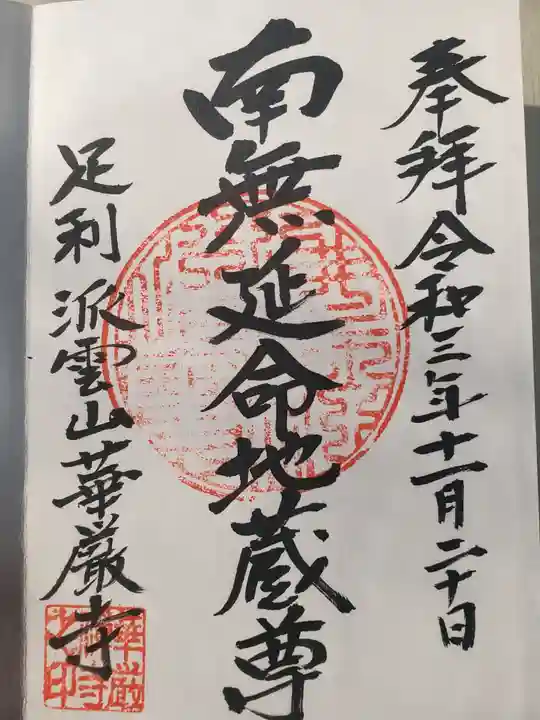 奉拝 令和三年十一月二十日
南無延命地蔵尊
足利 派雲山華厳寺